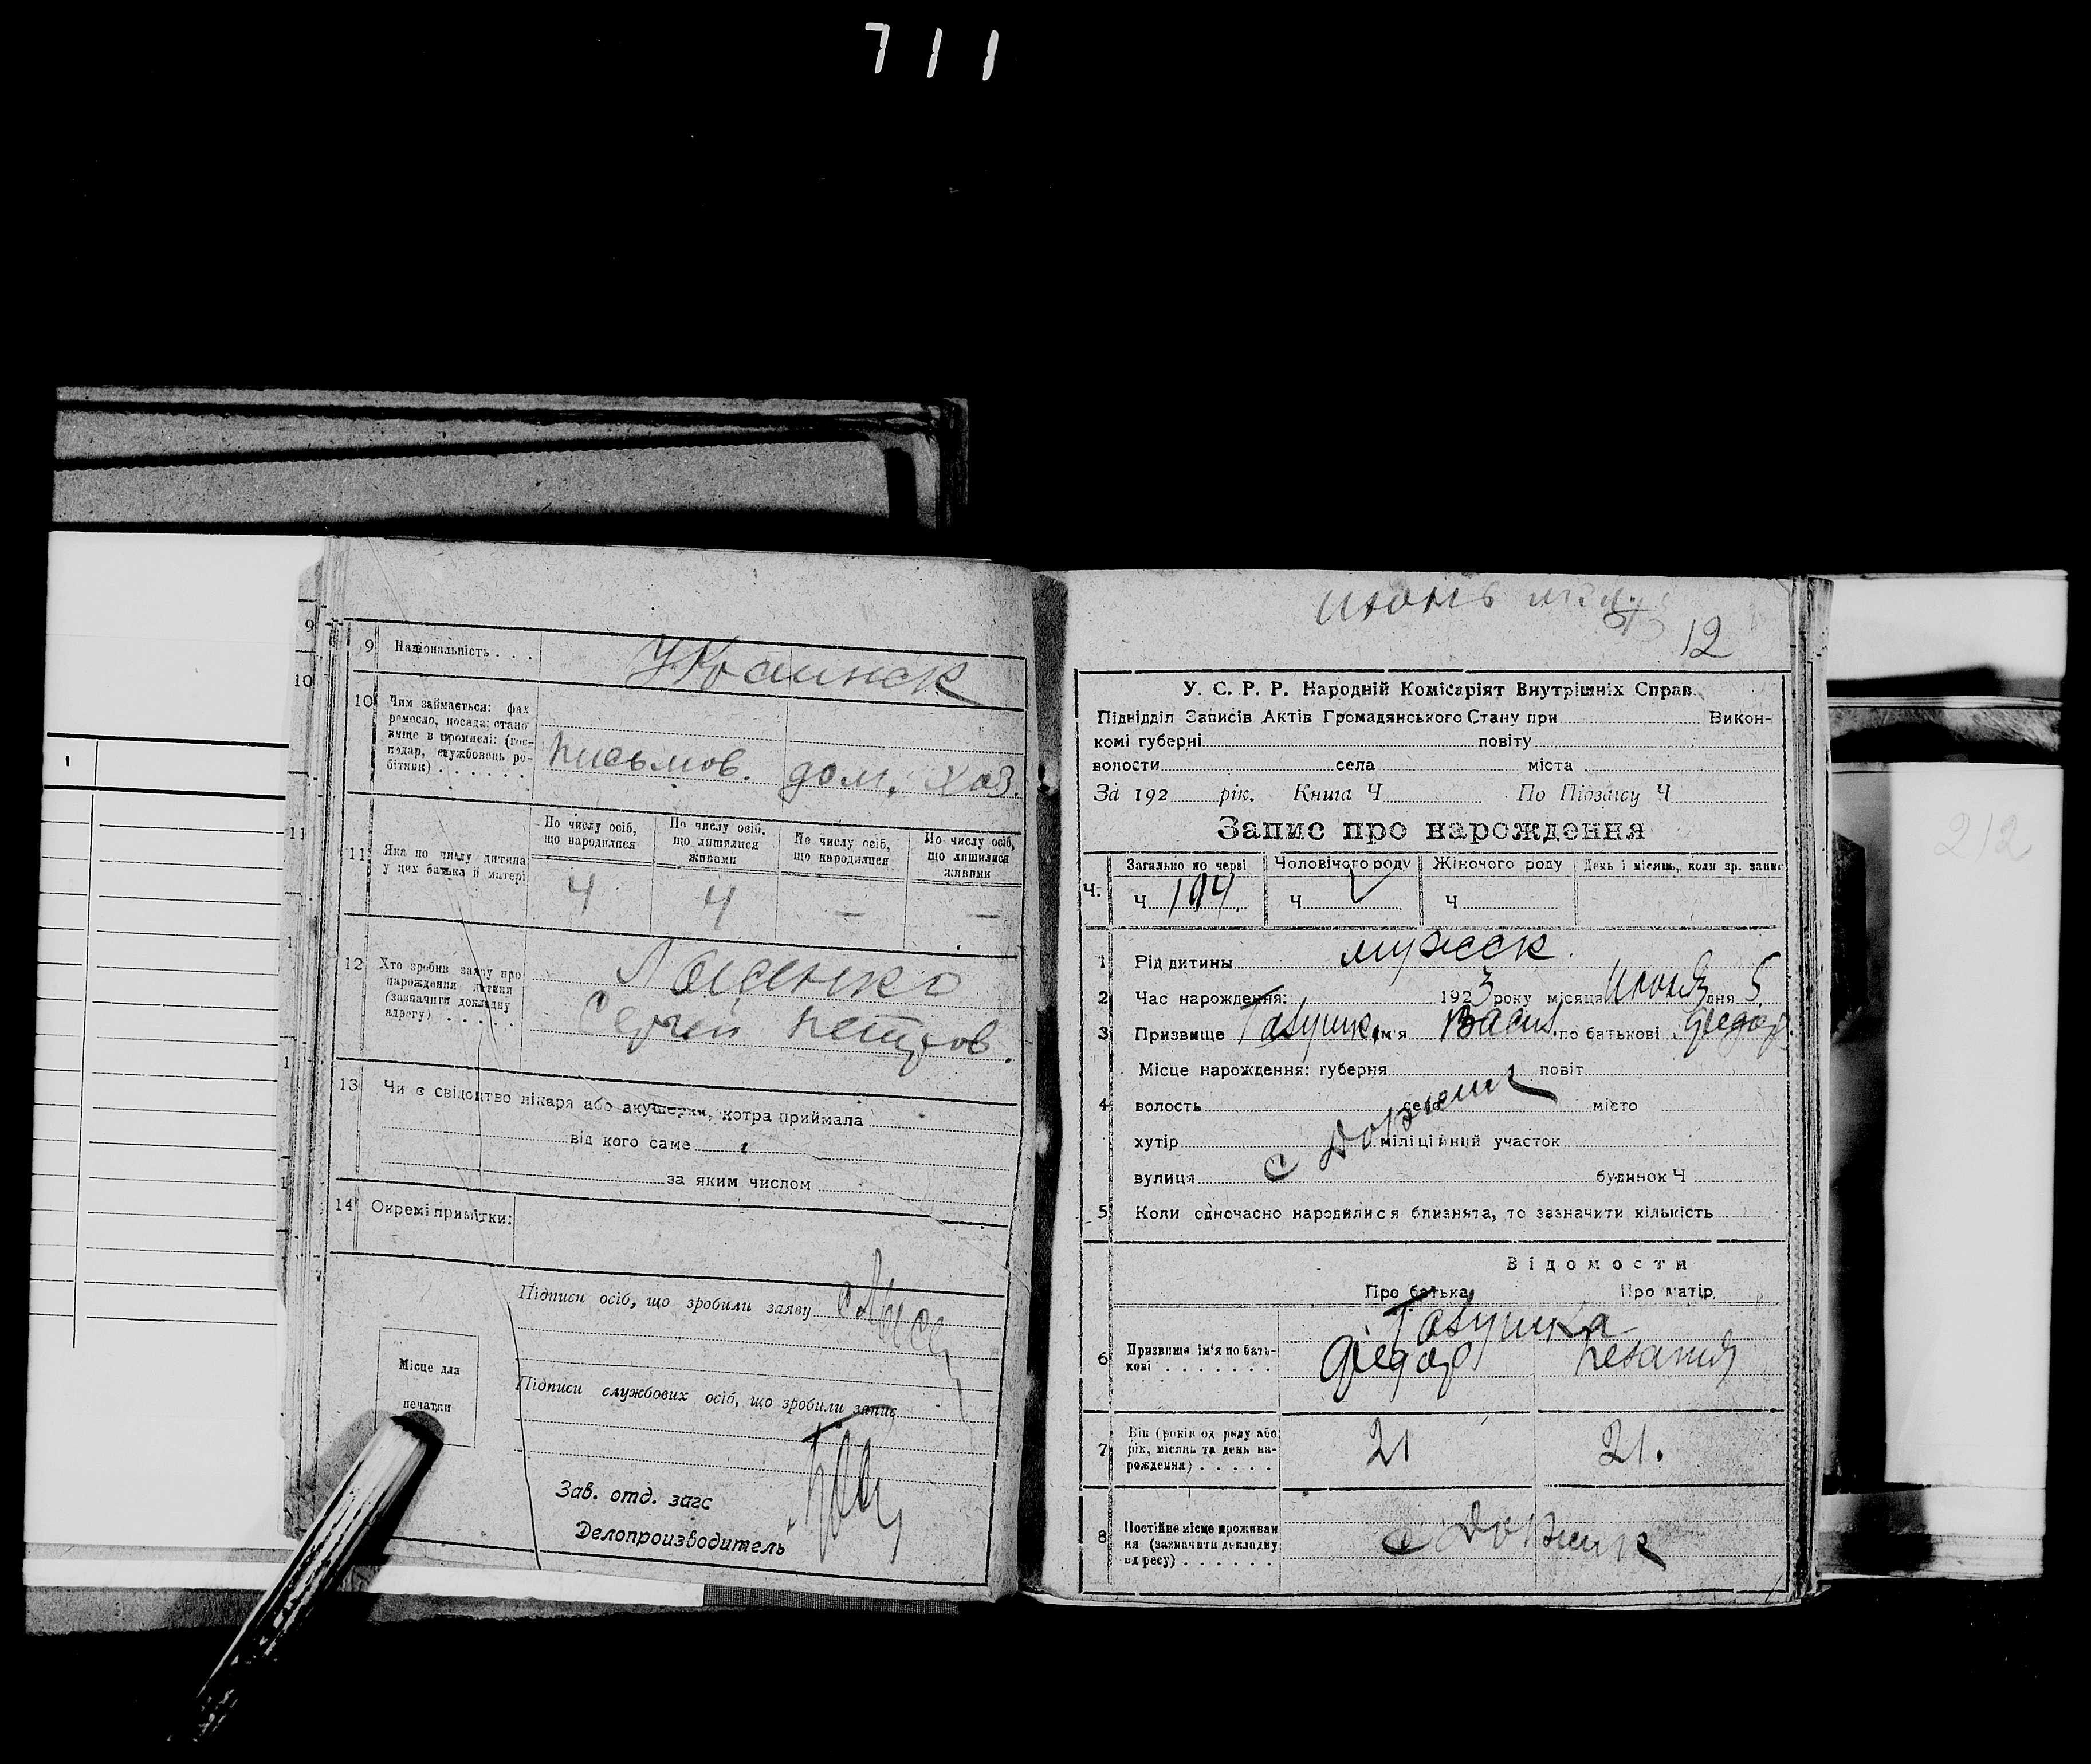 711
9
10
1
11
1
1
1
1
9 Національність . . .
Украинск
10 Чим займається: фах
ремесло, посада: стано
вище в промислі: (гос-
подар, службовець ро-
бітник) . . . . . .
письмов. дом. хоз.
11 Яка по числу дитина
у цих батька й матері
По числу осіб, що народилися
По числу осіб, що лишилися живими
По числу осіб, що народилися
По числу осіб, що лишилися живими
4 4 — —
12 Хто зробив заяву про
нарождення дитини
(зазначити докладну
адресу) . . . . .
Сергей Петров.
13 Чи є свідоцтво лікаря або акушерки, котра приймала
від кого саме
за яким числом
14 Окремі примітки:
Підписи осіб, що зробили заяву
Місце для
печатки
Підписи службових осіб, що зробили запис
Зав. отд. загс
Делопроизводитель
июнь
12
У. С. Р. Р. Народній Комісаріят Внутрішніх Справ
Підвідділ Записів Актів Громадянського Стану при Викон-
комі губерні повіту
волости села міста
За 192 рік. Книга Ч По Підзапису Ч
Запис про нарождення
Загально по черзі Чоловічого роду Жіночого роду День і місяць, коли зр. запис
Ч. Ч 104. Ч Ч
1 Рід дитины мужск.
2 Час нарождення: 1923 року місяця июня дня 5.
3 Призвище ім'я Васил. по батькові Федор.
Місце нарождення: губерня повіт
4 волость село місто
хутір міліційний участок
вулиця с будинок Ч
5 Коли одночасно народилися близнята, то зазначити кількість
Відомости
Про батька Про матір
6 Призвище ім'я по бать-
кові . . . . . . .
Федор
7 Вік (років од роду або
рік, місяць та день на-
рождення) . . . . .
21 21.
8 Постійне місце проживан
ня (зазначити докладну
адресу) . . . . . .
с
212